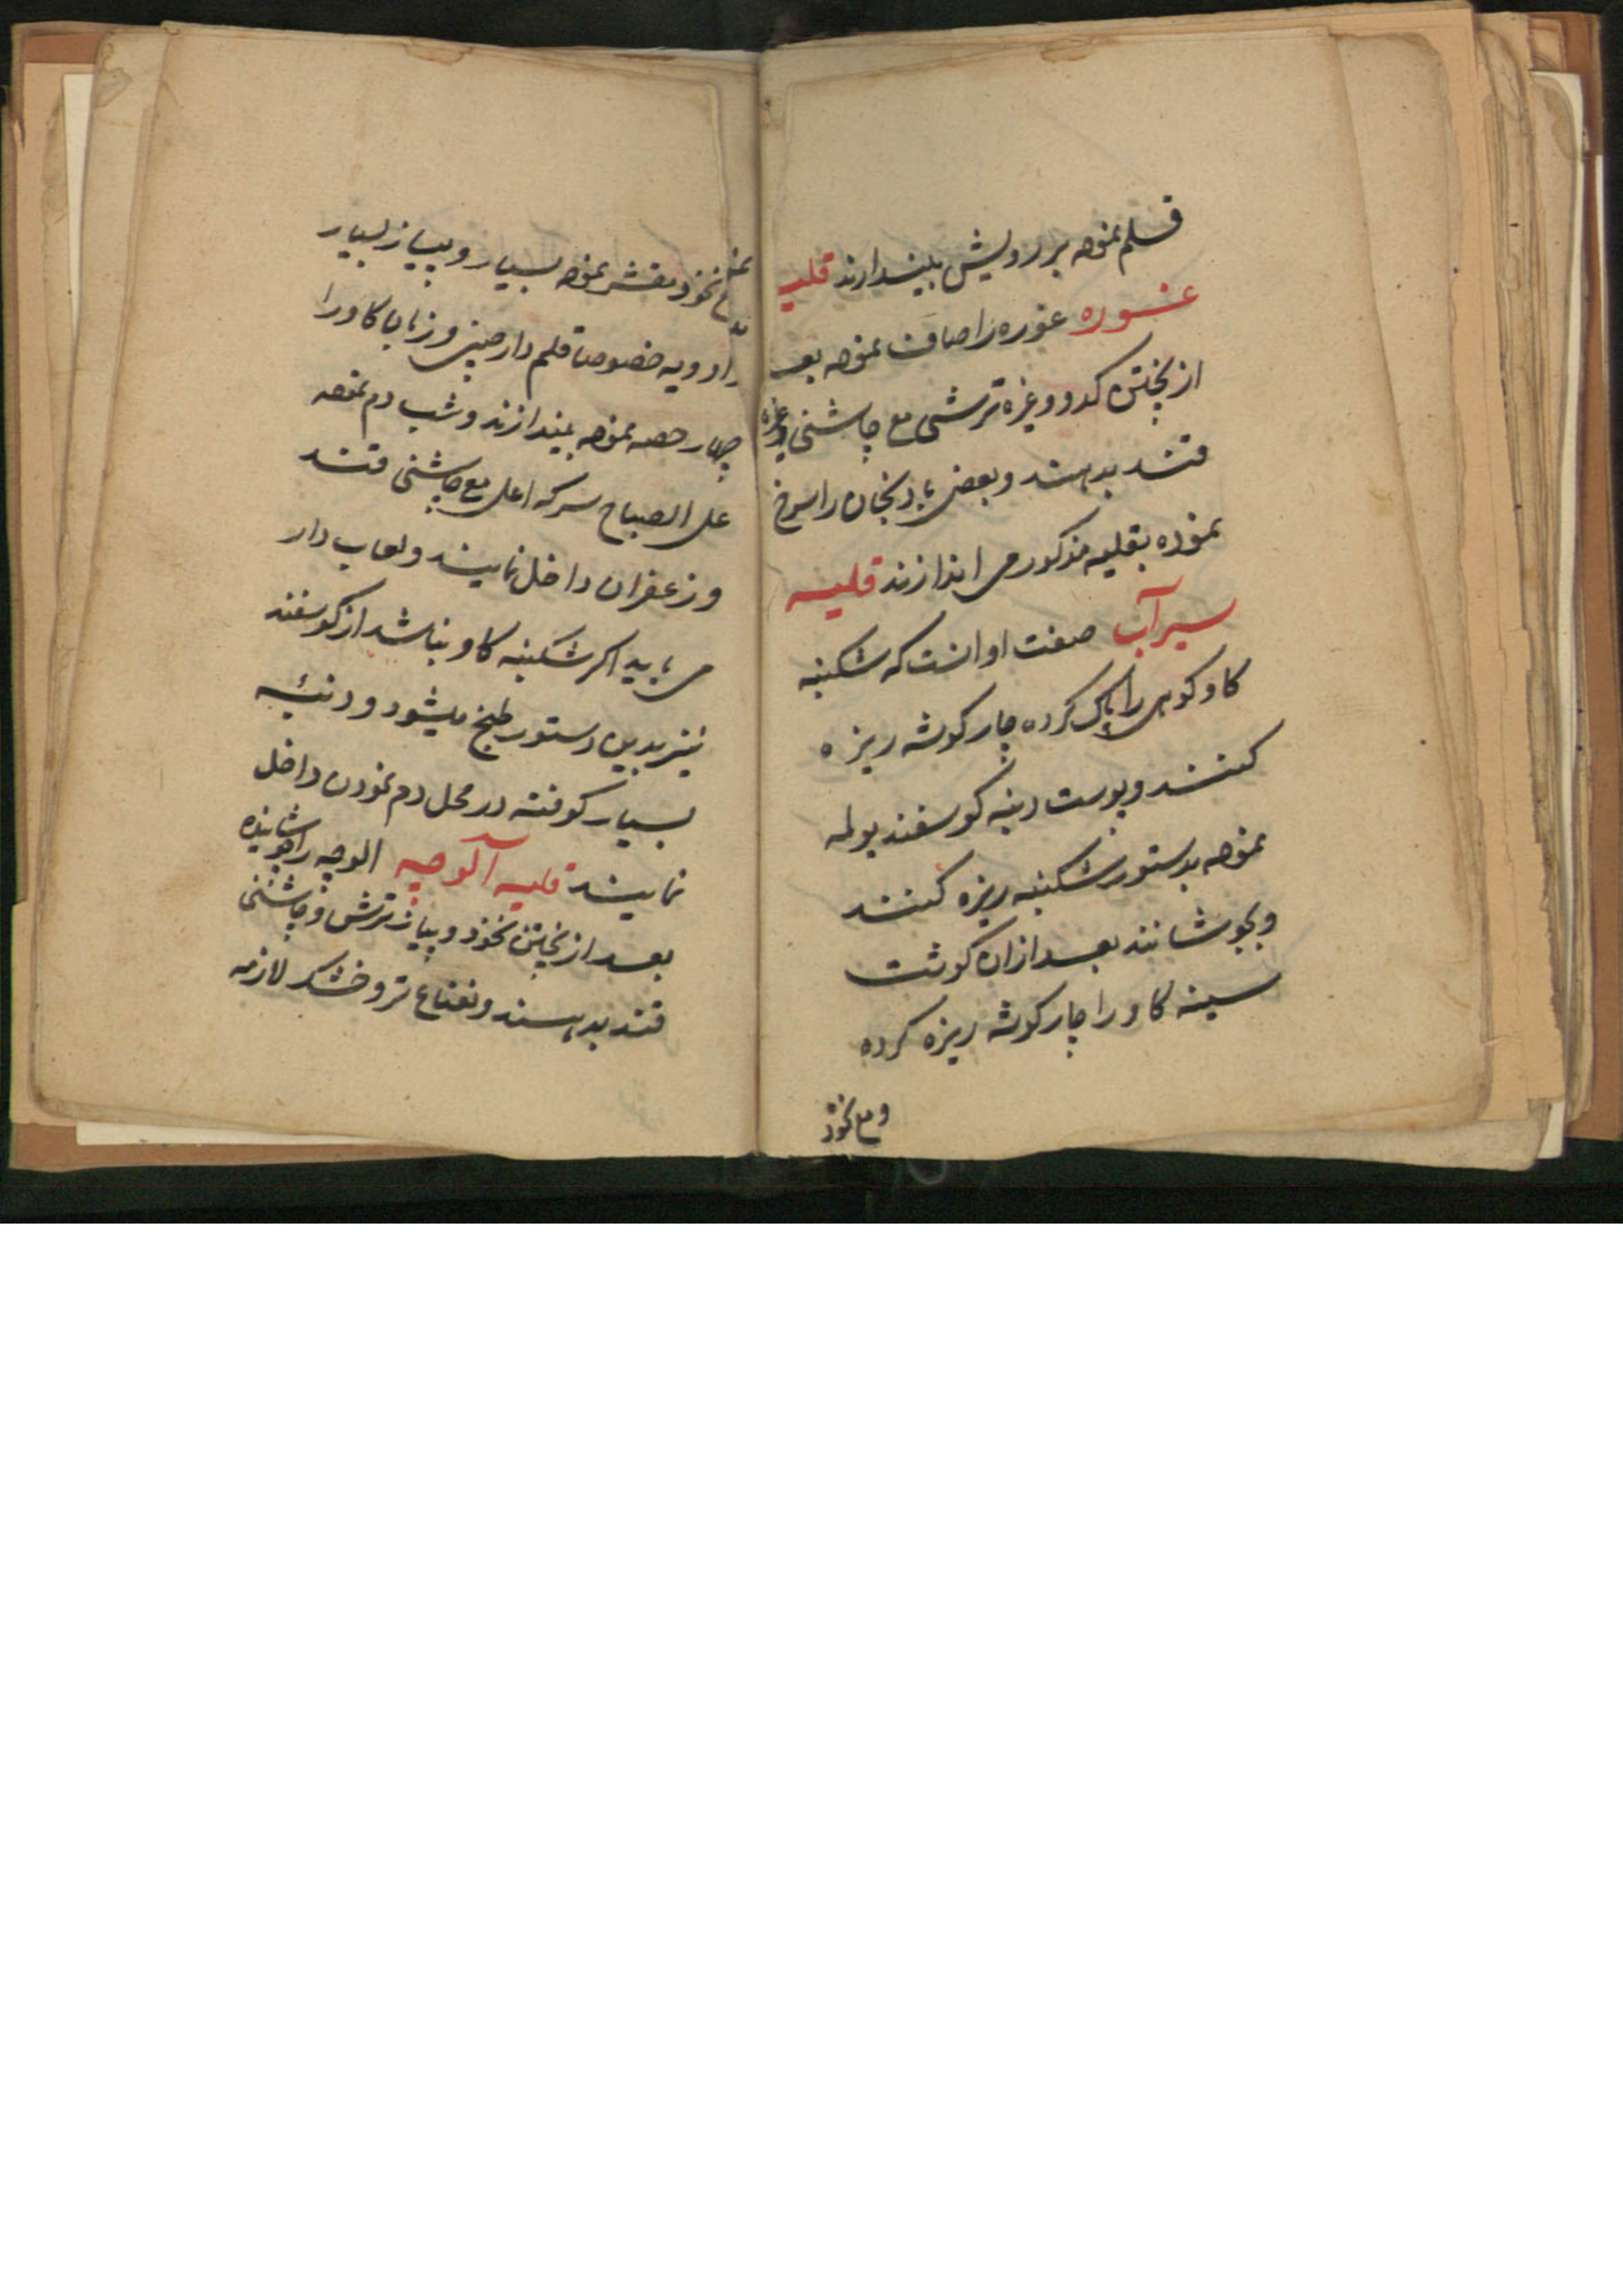 قلم نموده بر رویش بیندازند قلیه
غوره غوره را صاف نموده بعد
از پختن کدو و غیره ترشی مع چاشنی وغیره
قند بدهند و بعضی بادنجان را سرخ
نموده بقلیه مذکور می اندازند قلیه
سیرآب صفت او انست که شکنبه
کاو کوهی را پاک کرده چار کوشه ریزه
کنند و پوست دنبه کوسفند
نموده بدستور شکنبه ریزه کنند
و بجوشانند بعد ازان کوشت
سینه کاو را چار کوشه ریزه کرده
و مع نخود
نخود مقشر نموده بسیار و پیاز بسیار
ادویه خصوصا قلم دارچینی و زبان کاو را
چهار حصه نموده بیندازند و شب دم نموده
علی الصباح سرکه اعلی مع چاشنی قند
و زعفران داخل نمایند و لعاب دار
می باید اکر شکنبه کاو نباشد از کوسفند
نیز بدین دستور طبخ میشود و دنبه
بسیار کوفته در محل دم نمودن داخل
نمایند قلیه آلوچه الوچه را جوشانیده
بعد از پختن نخود و پیاز ترش و چاشنی
قند بدهند و نعناع تر و خشک لازمه